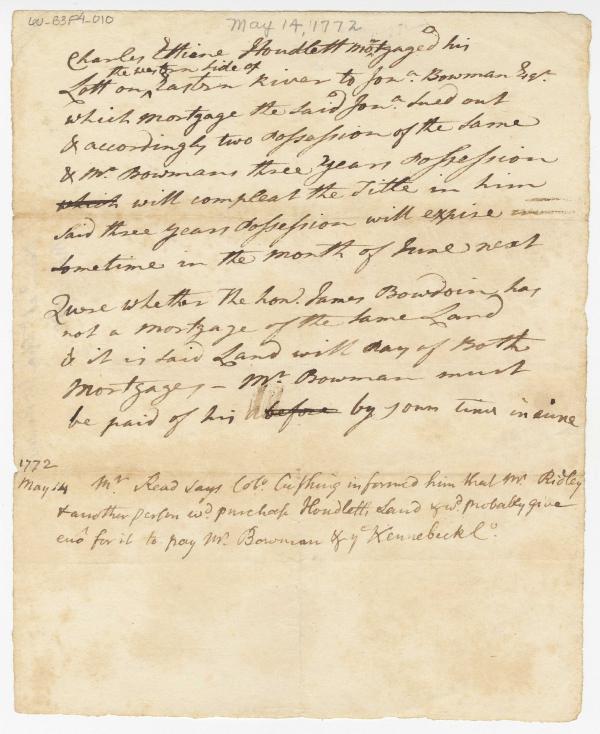 W-B3F4-010
May 14, 1772
Charles Ettiene Houdlett mortgaged his
the western side of
Lott on ^ Eastern River to Jona. Bowman Esqr.
which mortgage the said Jona. sued out
& accordingly two Possession of the same
& Mr. Bowmans three Years Possession
which will compleat the Title in him
said three years Possession will expire in
sometime in the month of June next
Quere whether the honl. James Bowdoin has
not a mortgage of the same Land
& it is said Land will Pay of Both
Mortgages – Mr. Bowman must
be paid of his before by some time in June
1772
May 14 Mr. Read says Colo. Cushing informed him that Mr. Ridley
& another person wd. purchase Houdletts Land & wd. probably give
eno' for it to pay Mr. Bowman & ye Kennebeck Co.